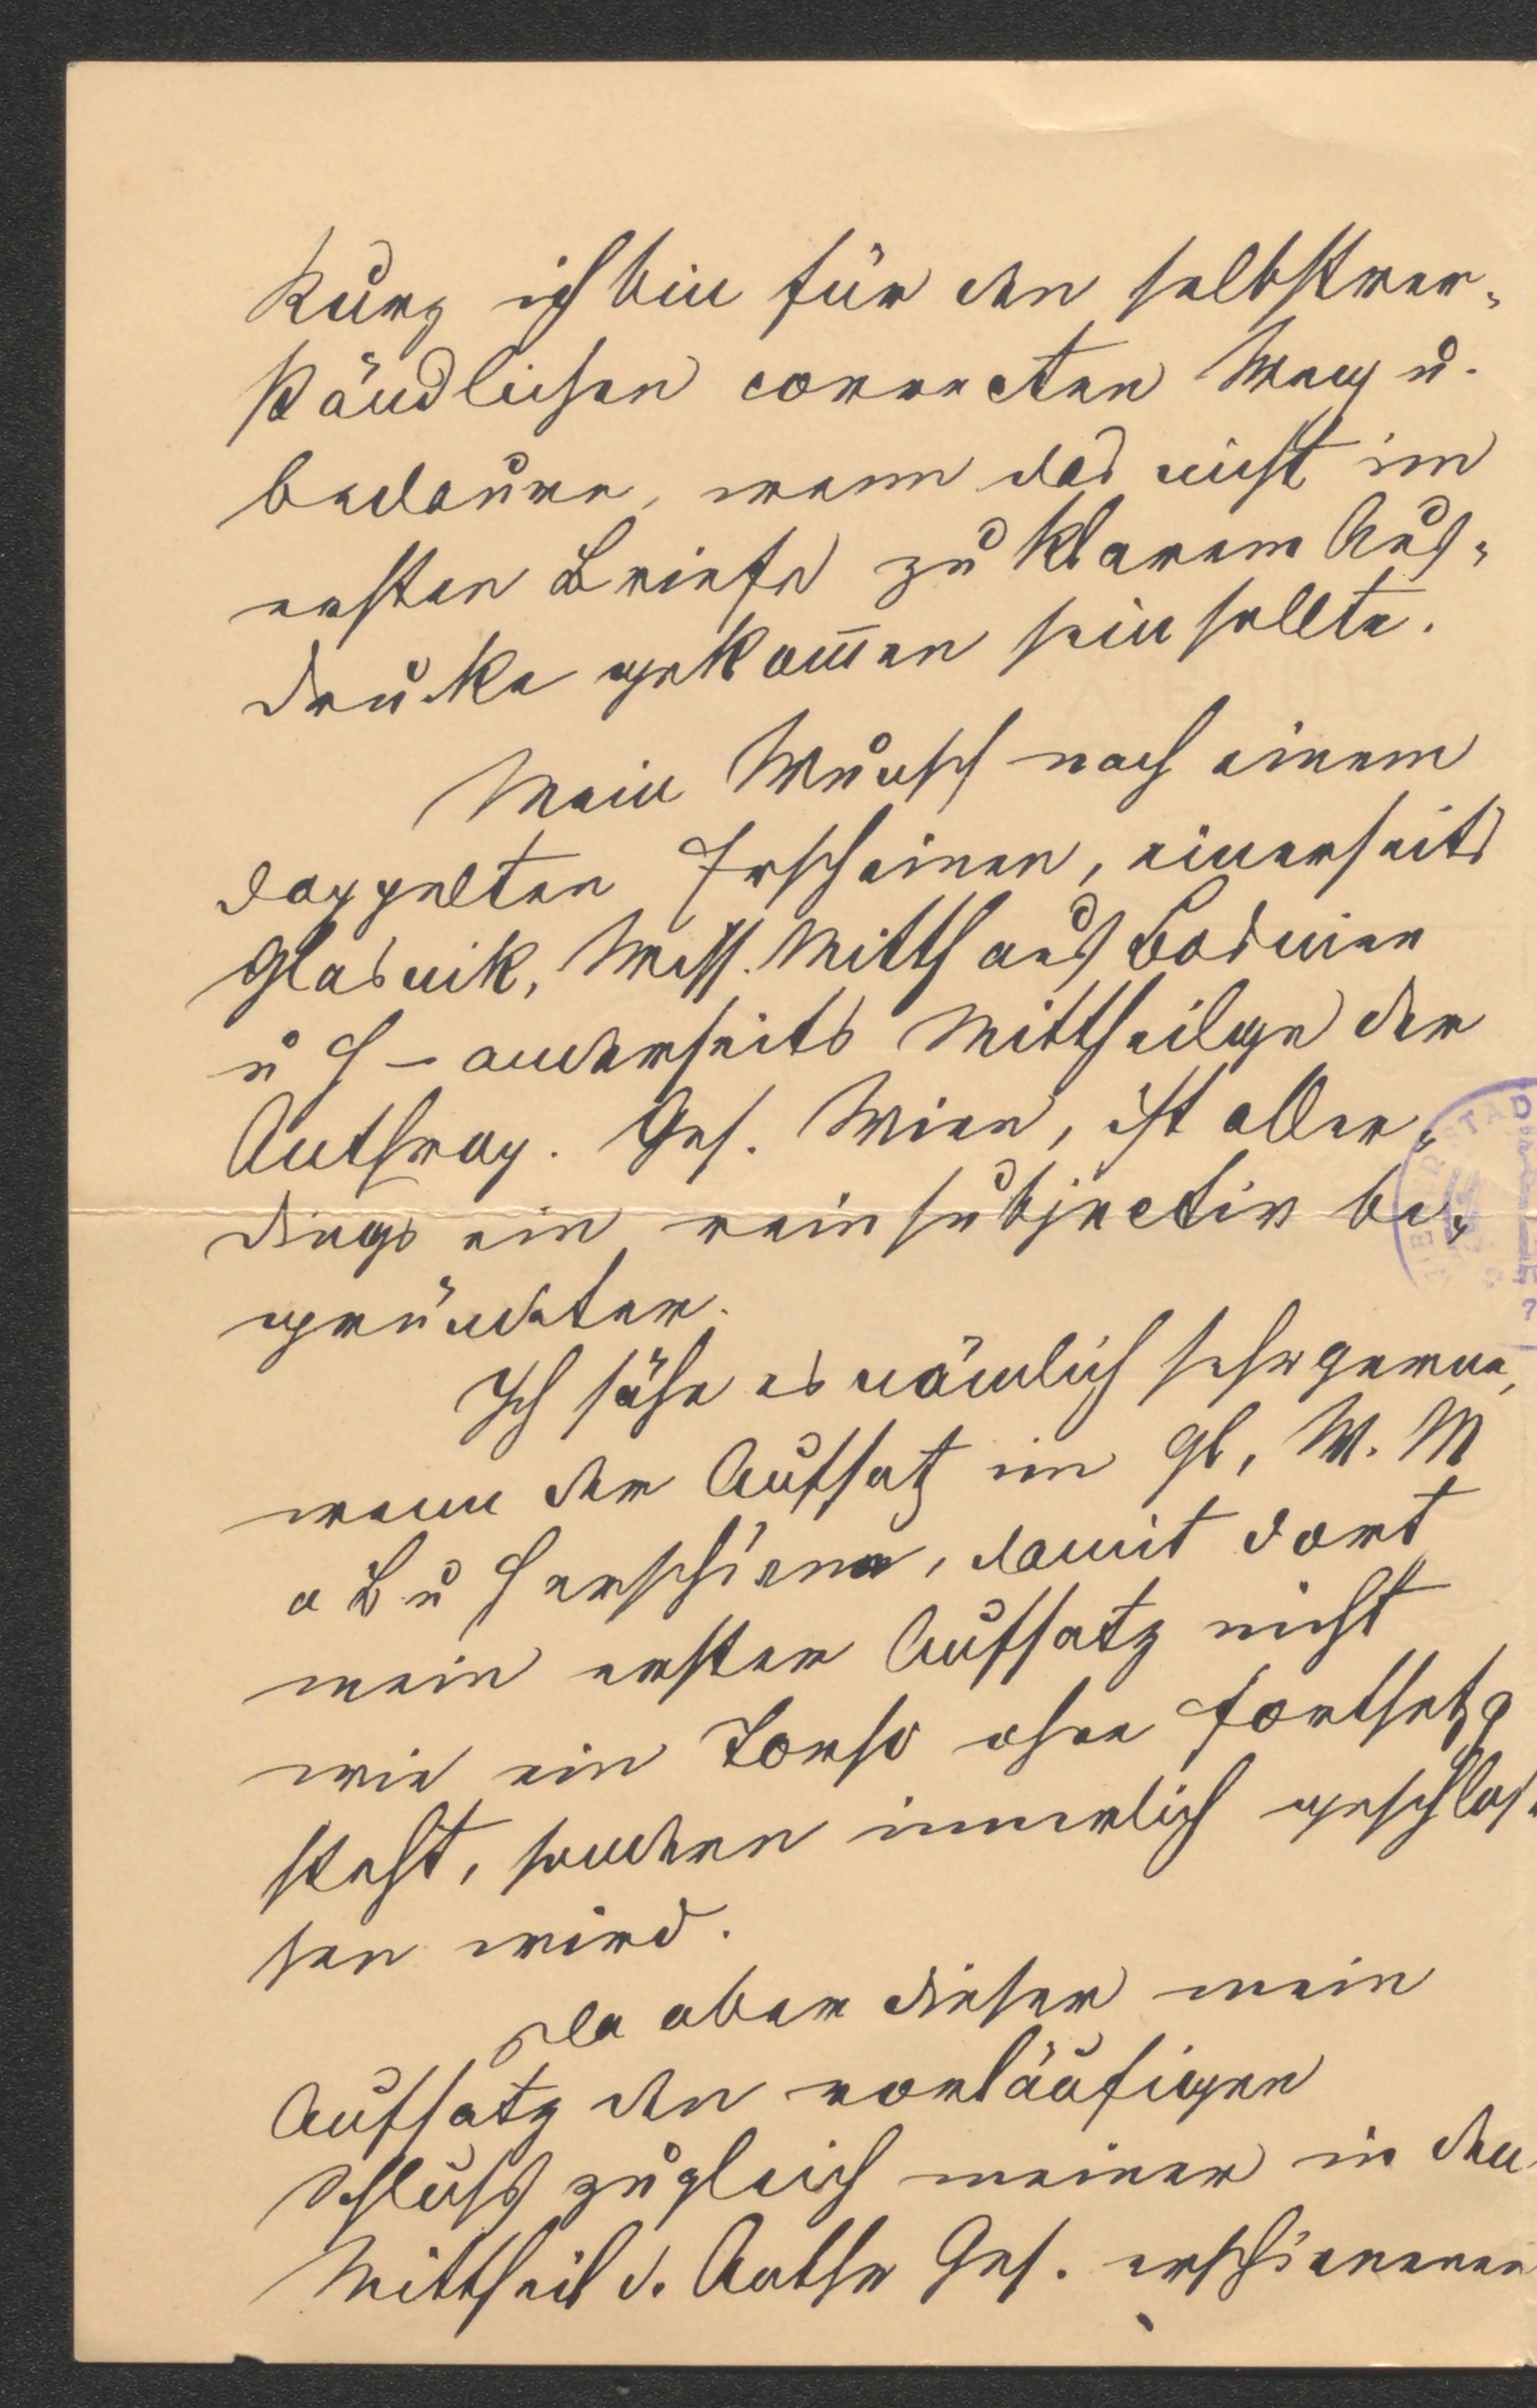 Kurz ich bin für den selbstver-
ständlichen correcten Weg u.
bedaure, wenn das nicht im
ersten Briefe zu klarem Aus-
drucke gekom̅en sein sollte.
Mein Wunsch nach einem
doppelten Erscheinen, einerseits
Glasnik, Wiss. Mitth aus Bosnien
u H – anderseits Mittheilge der
Anthrop. Ges. Wien, ist aller-
dings ein rein subjectiv be-
gründeter.
Ich sähe es nämlich sehr gerne,
wenn der Aufsatz im Gl, W. M
a B u H erschiene, damit dort
mein erster Aufsatz nicht
wie ein Torso ohne Fortsetzg
steht, sondern innerlich geschlos-
sen wird.
Da aber dieser mein
Aufsatz den vorläufigen
Schluss zugleich meiner in den
Mittheil d. Anthr Ges. erschienenen